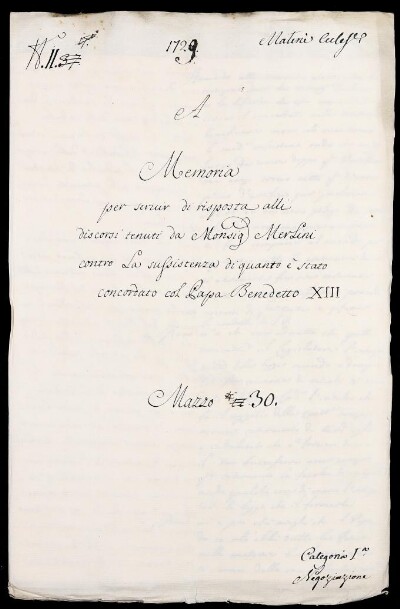 1729.
Materie Eccles.e
N.° 11.
A
Memoria
per servir di risposta alli
discorsi tenuti da Monsig.r Merlini
contro La sussistenza di quanto è stato
concordato col Papa Benedetto XIII
Mazzo 30.
Categoria I.a
Negoziazione